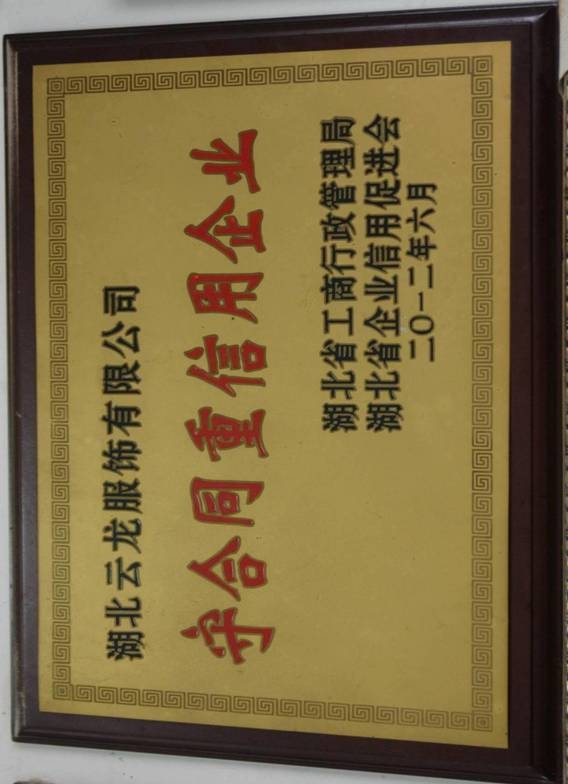 湖北云龙服饰有限公司
守合同重信用企业
湖北省工商行政管理局
湖北省企业信用促进会
二〇一二年六月